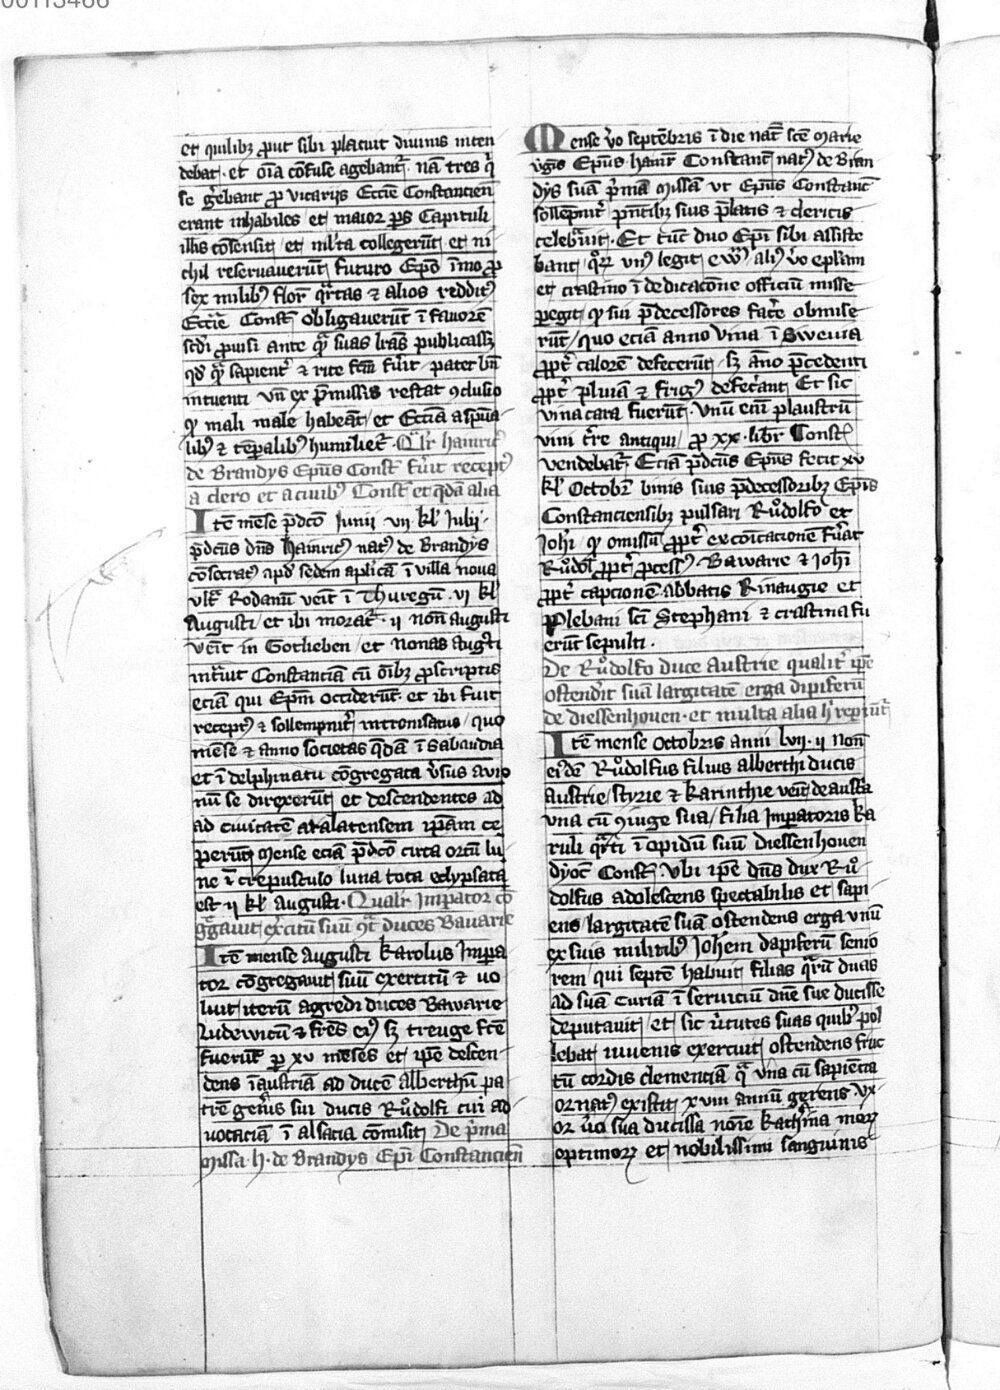 00113466
et quilibꝫ ꝓut sibi placuit diuinis inten
debat · et oīa cōfuse agebant᷑ · nā tres q̇
se gˀebant ꝓ vicarijs Eccīe Constancien̄
erant inhabiles et maior ꝑs Capituli
illis cōsensit et ml̄ta collegerūt et ni
chil reseruauerūt futuro Epō īmo ꝓ
sex milibꝰ flor̄ q̄rtas ⁊ alios redditꝰ
Eccīe Const̄ obligauerūt ī fauorē
sc̄di ꝓuisi ante q̄ꝫ suas lr̄as publicassꝫ
qd̄ q̄ꝫ sapient᷑ ⁊ rite fcm̄ fu᷑it pater bn̄
intuenti vn̄ ex p̄missis restat ꝯclusio
qꝫ mali male habeāt et Ecciā a spūa
libꝰ ⁊ tēpalibꝰ humiliet᷑ · Qlr̄ hainricꝰ
de Brandys Epūs Const̄ fuit receptꝰ
a clero et a ciuibꝰ Const̄ et q̄dā alia
Itē mēse p̄dc̄o Junii vii kl̓ Julij ·
p̄dcūs dn̄s Hainricꝰ natꝰ de Brandys
cōsecratꝰ apd̓ sedem aplīcā ī villa noua
vlt̄ Rodanū venit ī Thuregū · vj kl̓
Augusti et ibi morat᷑ · ij non̄ augusti
venit in Gotlieben et Nonas augusti
int̄uit Constanciā cū oībꝫ ꝓscriptis
eciā qui Epm̄ occiderūt · et ibi fuit
receptꝰ ⁊ sollempnit᷑ intronisatus quo
mēse ⁊ anno societas q̄dā ī Sabaudia
et ī delphinatu cōgregata v̓sus auio
nū se direxerūt et descendentes ad
ad ciuitatē aralatensem ip̄am ce
perūt mense eciā p̄dco circa ortū lu
ne ī crepusculo luna tota eclypsata
est ij kl̓ augusti · Qualr̄ Impator cō
g̓gauit ex̓citū suū ꝯt̄ duces Bauarie
Itē mense augusti Karolus Impa
tor cōgregauit suū exercitū ⁊ uo
luit iterū agredi duces Bawarie
Ludewicū ⁊ fr̄es eiꝰ sꝫ treuge fc̄e
fuerūt ꝑ xv mēses et ip̄e descen-
dens ī austriā ad ducē alberthū pa
trē gen̓is sui ducis Růdolfi cui ad-
uocaciā ī alsacia cōmisit De p̓ma
missa · h · de Brandys Epī Constancien̄
Mense v̊o septēbris ī die nat̄ sc̄e Marie
v̓gīs Epūs hainr̄ Constanc̄ natꝰ de Bran
dys suā p̓mā missā vt Epūs Constanc̄
sollēpnit᷑ p̄ntibꝫ suis p̄latis ⁊ clericis
celebrauit · Et tūc duo Epī sibi assiste
bant qꝝ vnꝰ legit ewꝫ aliꝰ v̊o epl̄am
et crastino ī dedicacōne officiū misse
ꝑegit qꝫ sui p̄decessores fac̓e obmise
rūt quo eciam anno vina ī Swevia
ꝓpt̓ calorē defecerūt sꝫ āno p̄cedenti
ꝓpt̓ pluuiā ⁊ frigꝰ defec̓ant Et sic
vina cara fuerūt · Vnū em̄ plaustrū
vini t̓re antiqui ꝓ xx · libr̄ Const̄
vendebat᷑ · Eciā p̄dcūs Epūs fecit xv
kl̓ Octobr̄ binis suis p̄decessoribꝫ Epīs
Constanciensibꝫ pulsari Růdolfo et
Johī qꝫ omissū ꝓpt̓ excōicationē fu᷑at
Růdol̓ ꝓpt̓ ꝓcessꝰ · Bawarie ⁊ Johī
ꝓpt̓ capcionē abbatis Rinaugie et
Plebani scī Stephani ⁊ crastina fu
erūt sepulti .
De Růdolfo duce Austrie qualit̓ ip̄e
ostendit suā largitatē erga dapiferū
de diessenhouen · et multa alia h̓ repiūt᷑
Itē mense Octobris anni lvij · ij non̄
eiꝰdē Růdolfus filius alberthi ducis
Austrie Styrie ⁊ Karinthie venit de aust̓a
vna cū ꝯiuge sua filia Impatoris Ka
ruli q̄rti ī opidū suū diessenhouen
dyoc̄ Const̄ · Vbi ip̄e dn̄s dux Rů
dolfus adolescens spectabilis et sapi-
ens largitatē suā ostendens erga vnū
ex suis militibꝰ Joh̄em dapiferū senio
rem qui septē habuit filias q̄rū duas
ad suā curiā ī seruiciū dn̄e sue ducisse
deputauit et sic v̓tutes suas quibꝰ pol
lebat iuuenis exercuit ostendens fruc
tū cordis clemenciā q̄ vna cū sapiēcia
ornatꝰ existit xviii annū gerens · Vx-
or v̊o sua ducissa noīe Kath̓ina moꝝ
optimoꝝ et nobilissimi sanguinis